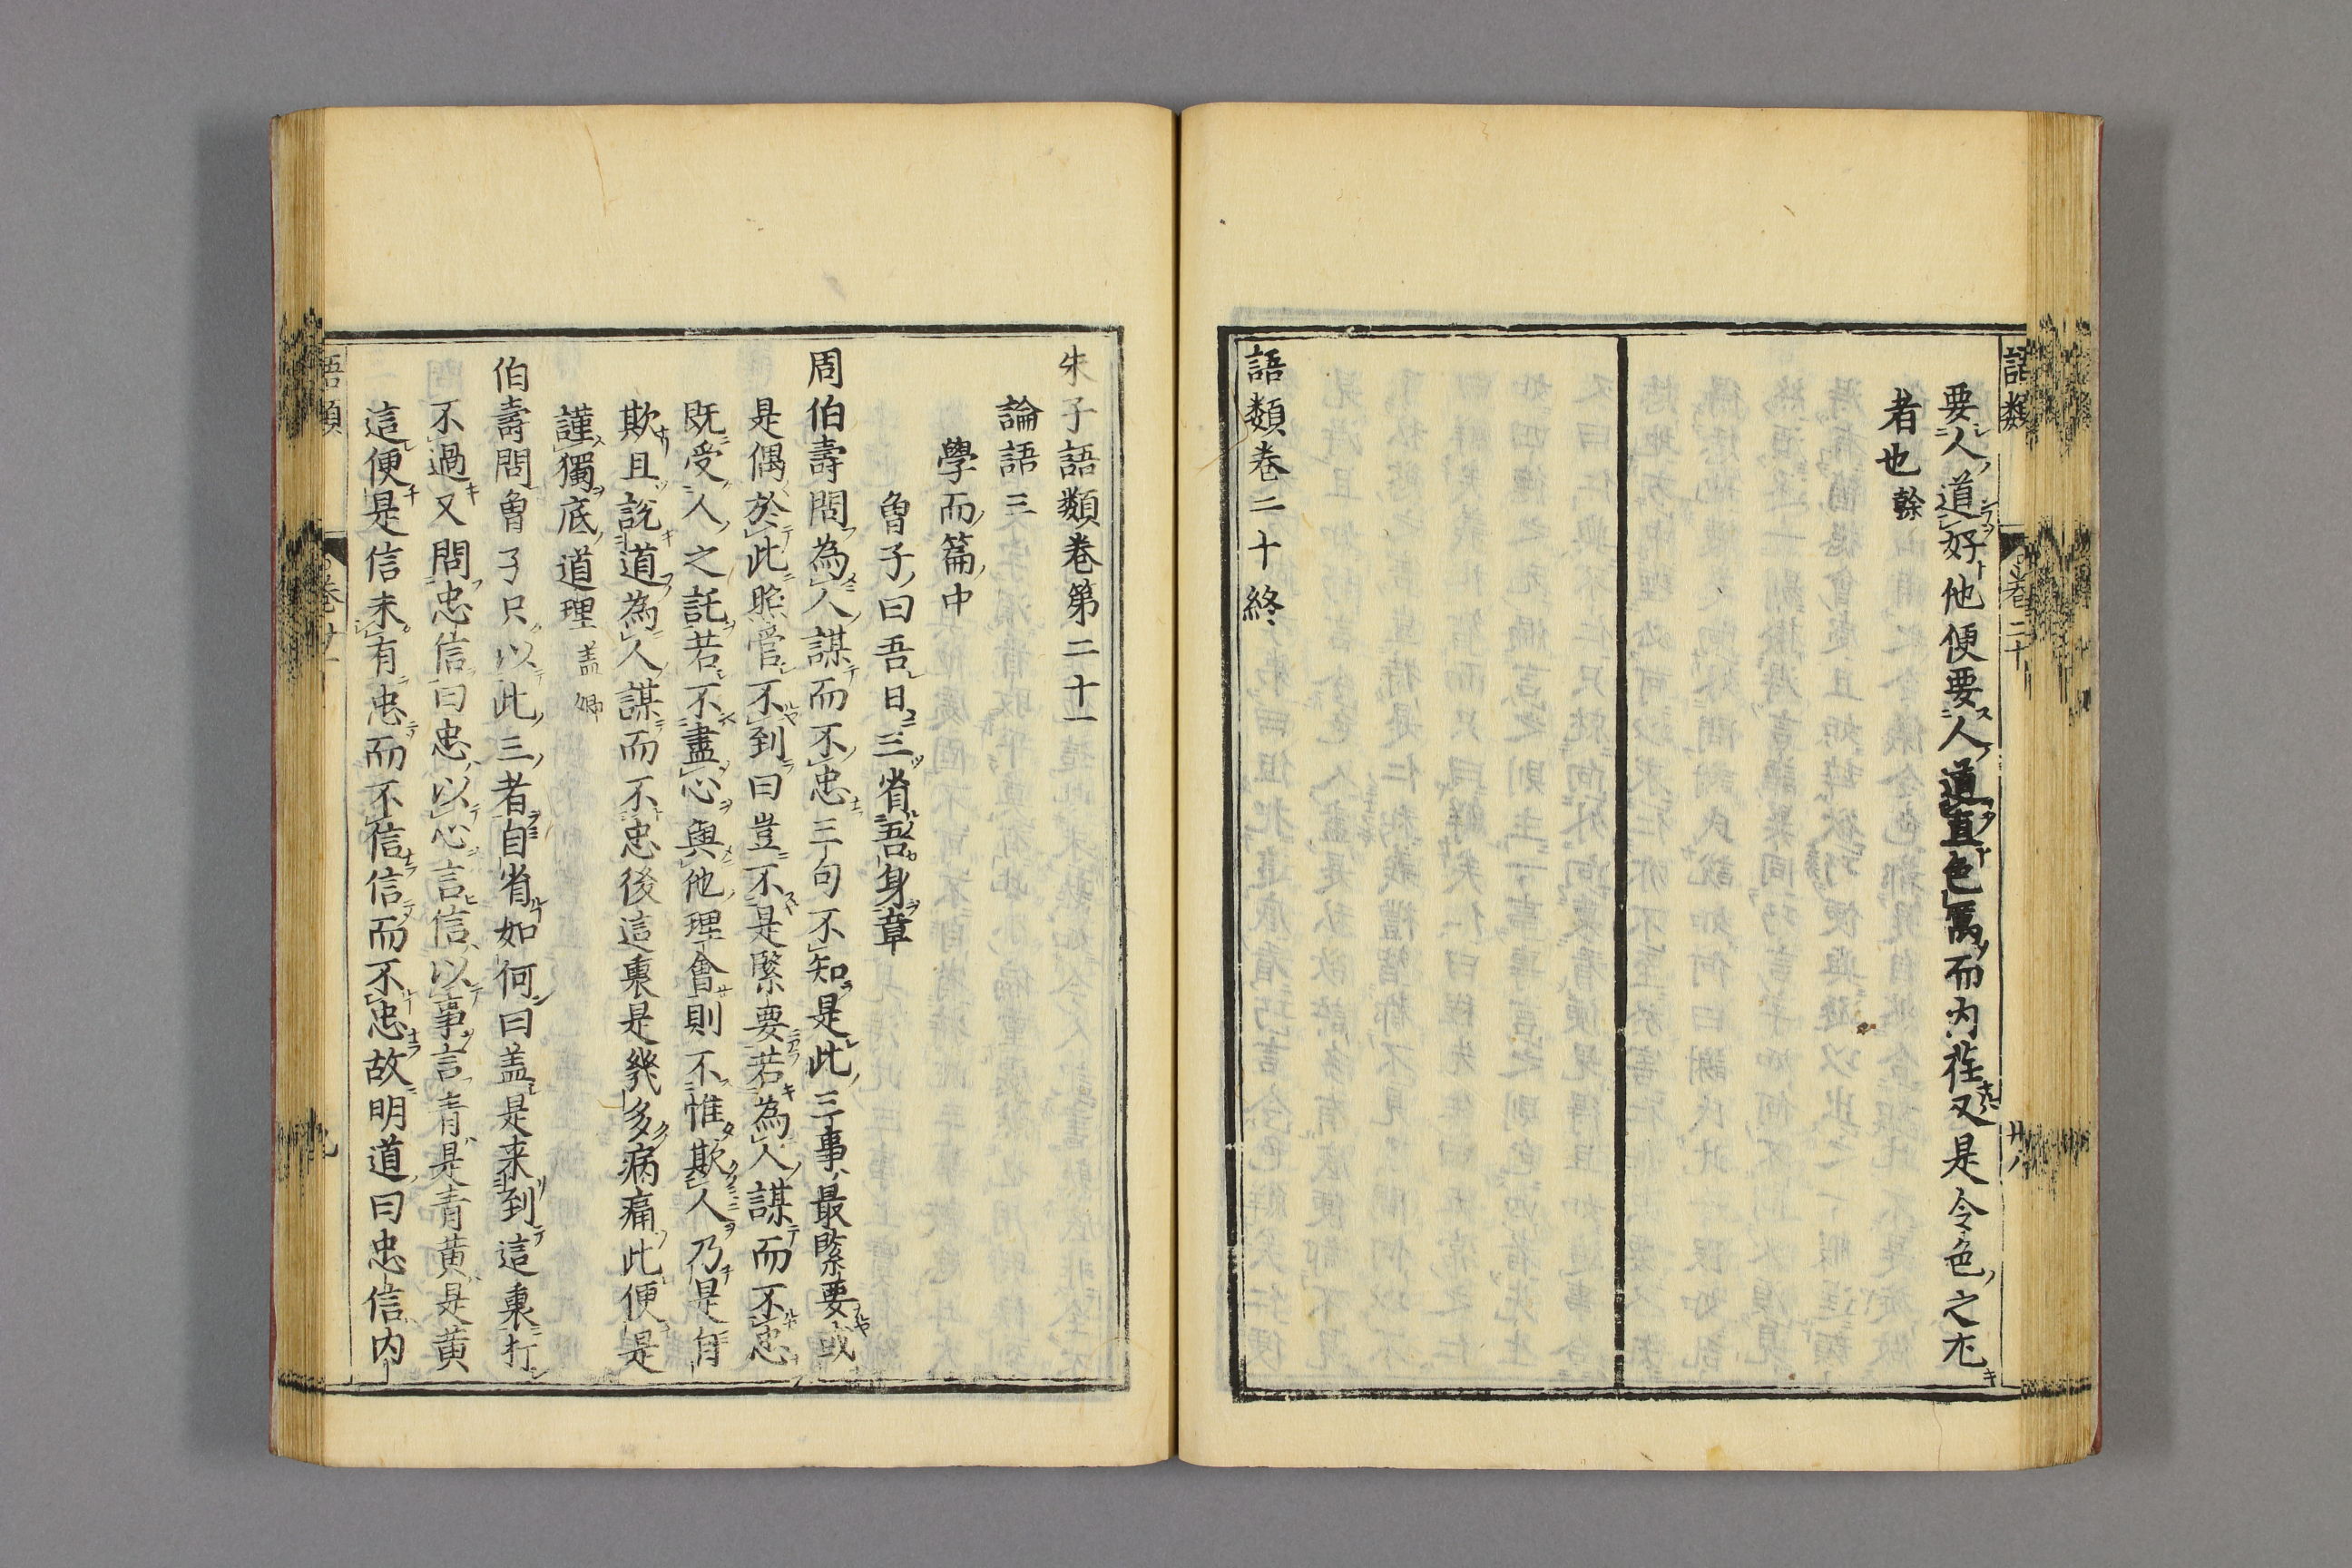 語類
卷二十
廿八
要人道好他便要人道直色厲而内荏又是令色之尤
者也榦
語類卷二十終
朱子語類卷第二十一
論語三
學而篇中
曾子曰吾日三省吾身章
周伯壽問為人謀而不忠三句不知是此三事最緊要或
是偶於此照管不到曰豈不是緊要若為人謀而不忠
既受人之託若不盡心與他理會則不惟欺人乃是自
欺且說道為人謀而不忠後這裏是幾多病痛此便是
謹獨底道理盖卿
伯壽問曾子只以此三者自省如何曰盖是来到這裏打
不過又問忠信曰忠以心言信以事言青是青黄是黄
這便是信未有忠而不信信而不忠故明道曰忠信内
語類
卷廿一